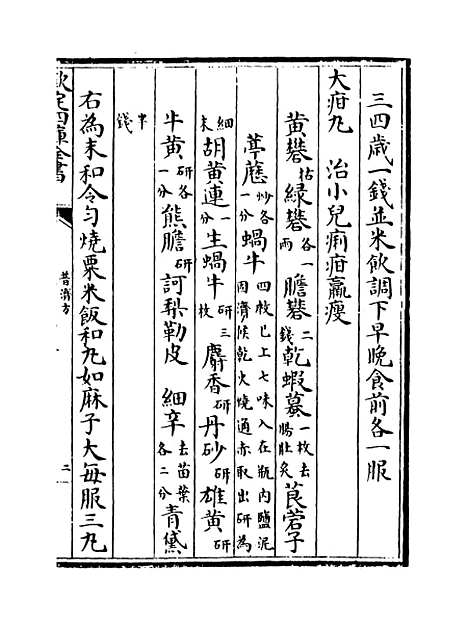 三四歳一錢並米飲調下早晚食前各一服
大疳丸　治小兒痢疳羸瘦
黄礬枯緑礬各一兩膽礬二錢乾蝦蟇一枚去腸肚炙莨菪子
葶藶炒各一分蝸牛四枚已上七味入在瓶内鹽泥固濟候乾火燒通赤取出研為
細末胡黄連一分生蝸牛研三枚麝香研丹砂研雄黄研
牛黄研各一分熊膽研訶梨勒皮　細辛去苗葉各二分青黛
半錢
右為末和令勻燒粟米飯和丸如麻子大每服三丸
欽定四庫全書
普濟方
二